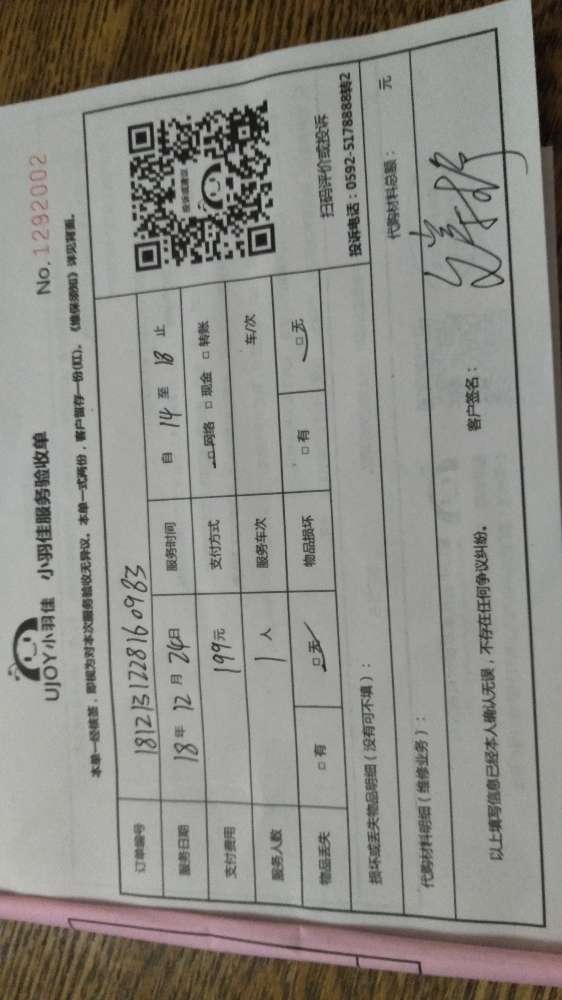 UJOY小羽佳 小羽佳服务验收单
No. 1292002
本单一经核签，即视为对本次服务验收无异议。本单一式两份，客户留存一份(红)。《维保须知》详见背面。
订单编号 1812131228160983
服务日期 18年 12月 24日 服务时间 自 14 至 18 止
支付费用 199元 支付方式 □网络 □现金 □转账
服务人数 1 人 服务车次 车/次
物品丢失 □有 □无 物品损坏 □有 □无
投诉或建议
扫码评价或投诉
投诉电话：0592-5178888转2
损坏或丢失物品明细（没有可不填）：
代购材料明细（维修业务）： 代购材料总额： 元
以上填写信息已经本人确认无误，不存在任何争议纠纷。
客户签名：